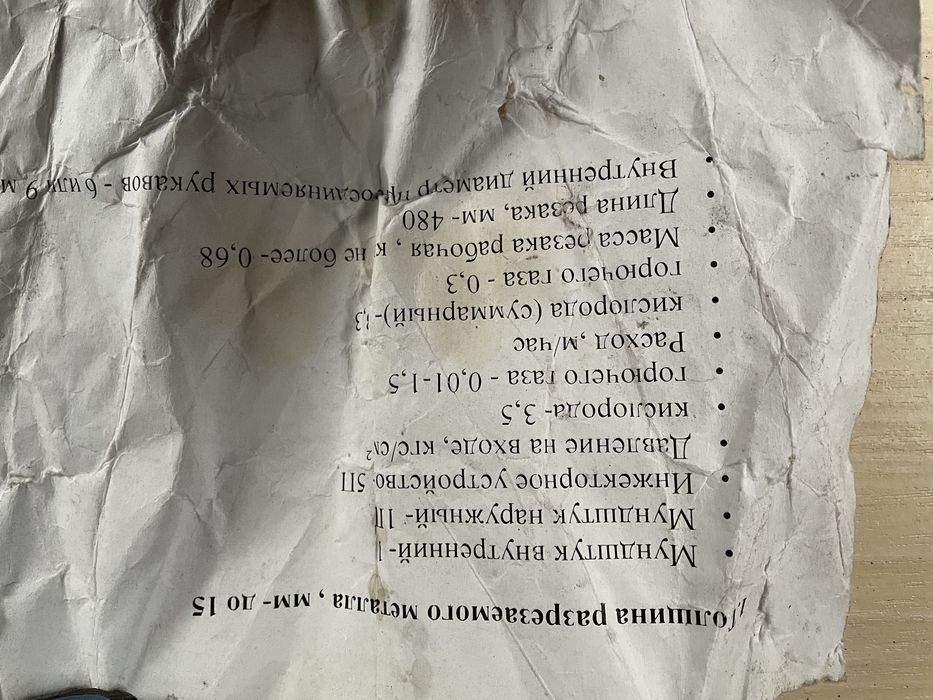 Толщина разрезаемого металла , мм- до 15
• Мундштук внутренний-
• Мундштук наружный- 1П
• Инжекторное устройство- 5П
• Давление на входе, кгс/см²
• кислорода- 3,5
• горючего газа - 0,01-1,5
• Расход ,м/час
• кислорода (суммарный)-
• горючего газа - 0,3
• Масса резака рабочая , к не более- 0,68
• Длина резака, мм- 480
• Внутренний диаметр присоединяемых рукавов - 6 или 9 м